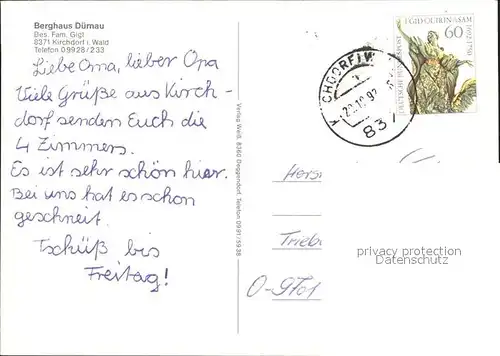 Berghaus Dürnau
Bes. Fam. Gigl
8371 Kirchdorf i. Wald
Telefon 09928/233
Liebe Oma, lieber Opa
Viele Grüße aus Kirch-
dorf senden Euch die
4 Zimmers.
Es ist sehr schön hier.
Bei uns hat es schon
geschneit.
Tschüß bis
Freitag!
Verlag Weiß, 8360 Deggendorf, Telefon 0991/5938
EGID QUIRIN ASAM
1692-1750
60
DEUTSCHE BUNDESPOST
KIRCHDORF I. W
20.10.92
837
Herr
Trieb
O-970
privacy protection
Datenschutz